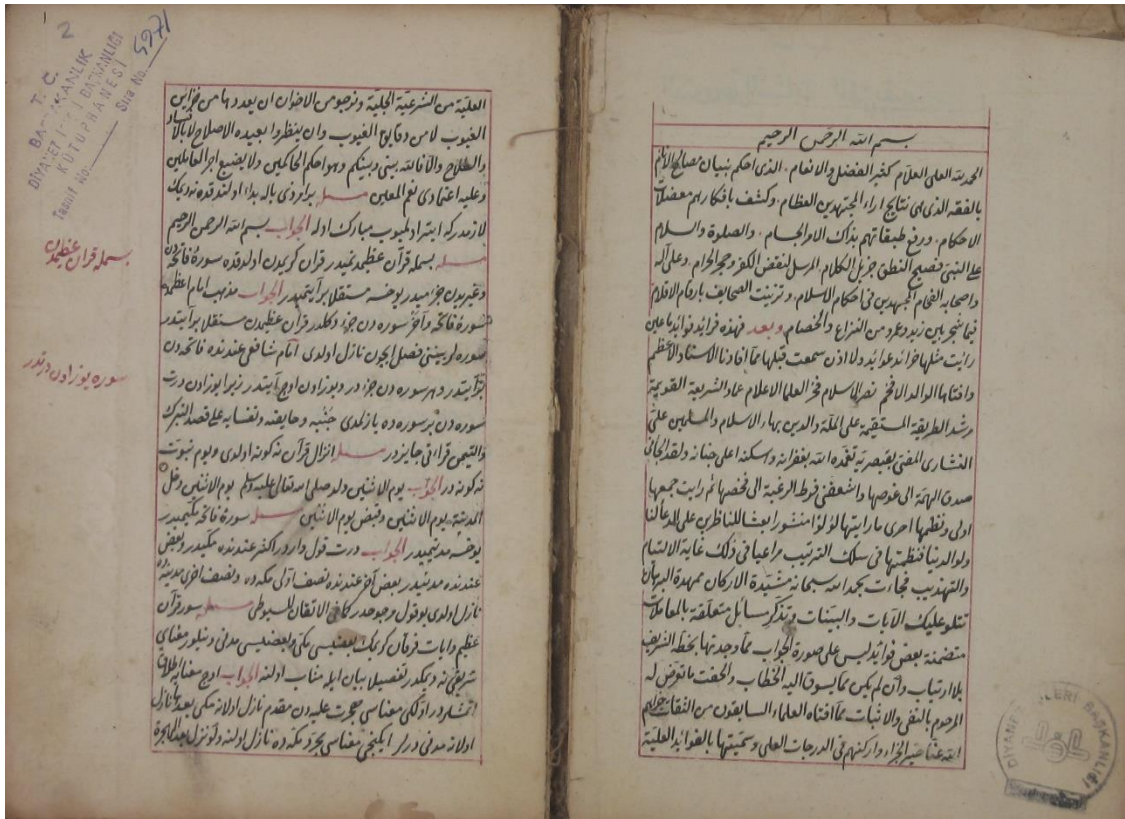 بسم الله الرحمن الرحيم
الحمد لله العلي العلام كثير الفضل والانعام الذى احكم بنيان مصالح الأنام
بالفقه الذى هى نتايج اراء المجتهدين العظام وكشف بافكارهم معضلات
الاحكام ورفع طبقاتهم بذاك الامر الجسام والصلوة والسلام
على النبى فصيح النطق جزيل الكلام المرسل لنقض الكفر وحجر الحرام وعلى آله
واصحابه الفخام المجتهدين فى احكام الاسلام وتزينت الصحايف بارقام الاقلام
فيما شجر بين زيد وعمرو من النزاع والخصام وبعد فهذه فرائد فوائد ما عين
رايت مثلها خرائد عوائد ولا اذن سمعت قبلها مما افادنا الاستاد الأعظم
وافتاها الوالد الافخم نصر الاسلام فخر العلما الاعلام عماد الشريعة القويمة
مرشد الطريقة المستقيمة على الملة والدين بهاء الاسلام والمسلمين على
النثارى المفتى بقيصريه تغمده الله بغفرانه واسكنه اعلى جنانه ولقد الجأنى
صدق الهمة الى غوصها واشعفنى فرط الرغبة الى فحصها ثم رايت جمعها
اولى ونظمها احرى ما رايتها لؤلؤا منثورا بعثا للناظرين على الدعا لنا
ولوالدينا فنظمتها فى سلك الترتيب مراعيا فى ذلك غاية الالتيام
والتهذيب فجاءت بحمد الله سبحانه مشيدة الاركان ممهدة البنيان
تتلو عليك الآيات والبينات وتذكر مسائل متعلقة بالمعاملات
متضمنة بعض فوائد ليس على صورة الجواب مما وجدتها بخطه الشريف
بلا ارتياب وأن لم يكن مما يسوق اليه الخطاب والحقت ما تعرض له
المرحوم بالنفى والاثبات مما افتاه العلماء السابقون من الثقات جزاهم
الله عنا خير الجزاء واركنهم فى الدرجات العلى وسميتها بالفوائد العلية
العلية من الشرعية الجلية ونرجو من الاخوان ان يعددها من خزاين
الغيوب لا من دقايق العيوب وان ينظروا بعيده الاصلاح لا بالافساد
والطلاح والا فالله بينى وبينكم وهو احكم الحاكمين ولا يضيع اجر العاملين
وعليه اعتمادى نعم المعين مسئله برامر ذى باله بداء اولندقده نه ديمك
لازمدر كه ابتدا اولميوب مبارك اوله الجواب بسم الله الرحمن الرحيم
مسئله بسمله قرآن عظيمدنميدر قران كريمدن اولدقده سورهٔ فاتحه دن
وغيريدن جزء ميدر يوخسه مستقلا بر آيتميدر الجواب مذهب امام اعظمده
سورهٔ فاتحه وآخر سوره دن جزء دكلدر قرآن عظيمدن مستقلا بر آيتدر
سوره لر بينى فصل ايچون نازل اولدى امام شافعى عندنده فاتحه دن
جزء آيتدر وهر سوره دن جزء در ويوز اون اوچ آيتدر زيرا يوز اون درت
سوره دن بر سوره ده يازلمدى جنبه وحايضه ونفسايه على قصد التبرك
والتيمن قرائتى جايزدر مسئله انزال قرآن نه كونه اولدى ويوم نبوت
نه كونه در الجواب يوم الاثنين ولد صلى الله تعالى عليه وسلم يوم الاثنين دخل
المدينة يوم الاثنين وقبض يوم الاثنين مسئله سورهٔ فاتحه مكيه ميدر
يوخسه مدنيه ميدر الجواب درت قول واردر اكثر عندنده مكيه در وبعض
عندنده مدنيه در بعض آخر عندنده نصف اولى مكه ده ونصف اخرى مدينه ده
نازل اولدى بو قول مرجوحدر كما فى الاتقان للسيوطى مسئله سور قرآن
عظيم وايات فرقان كريمك بعضيسى مكى وبعضيسى مدنى دينيلور معناى
شريفى نه ديمكدر تفصيلا بيان ايله مثاب اولنه الجواب اوچ معنايه اطلاق
اتمشلردر اولكى معناسى هجرت عليه دن مقدم نازل اولانه مكى بعده نازل
اولانه مدنى ديرلر ايكنجى معناسى مجرد مكه ده نازل اولنه ولو نزل بعد الهجرة
بسمله قران عظيمدن
سوره يوز اون درتدر
T. C.
BAŞBAKANLIK
DİYANET İŞLERİ BAŞKANLIĞI
KÜTÜPHANESİ
Tasnif No.
Sıra No.
2
DİYANET İŞLERİ BAŞKANLIĞI